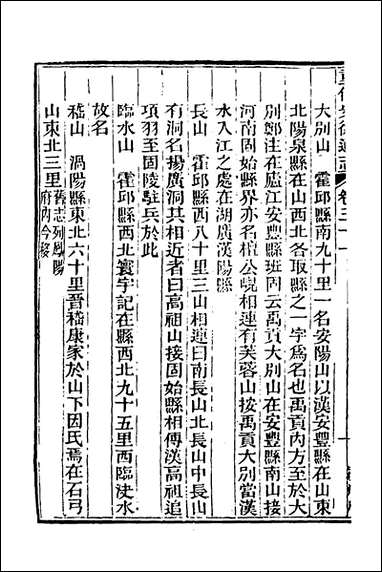 重修安徽通志 卷三十一
大別山　霍邱縣南九十里一名安陽山以漢安豐縣在山東
北陽泉縣在山西北各取縣之一字爲名也禹貢內方至於大
別鄭注在廬江安豐縣班固云禹貢大別山在安豐縣南山接
河南固始縣界亦名檀公峴相連有芙蓉山按禹貢大別當漢
水入江之處在湖廣漢陽縣
長山　霍邱縣西八十里三山相連曰南長山北長山中長山
有洞名揚廣洞其相近者曰高祖山接固始縣相傳漢高祖追
項羽至固陵駐兵於此
臨水山　霍邱縣西北寰宇記在縣西北九十五里西臨決水
故名
嵇山　渦陽縣東北六十里晉嵇康家於山下因氏焉在石弓
山東北三里舊志列鳳陽府內今移